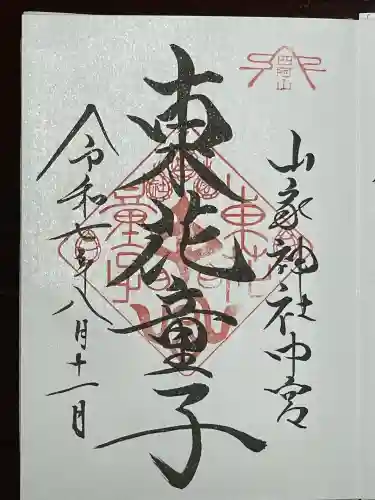 四阿山
山家神社中宮
東花童子
令和七年八月十一日